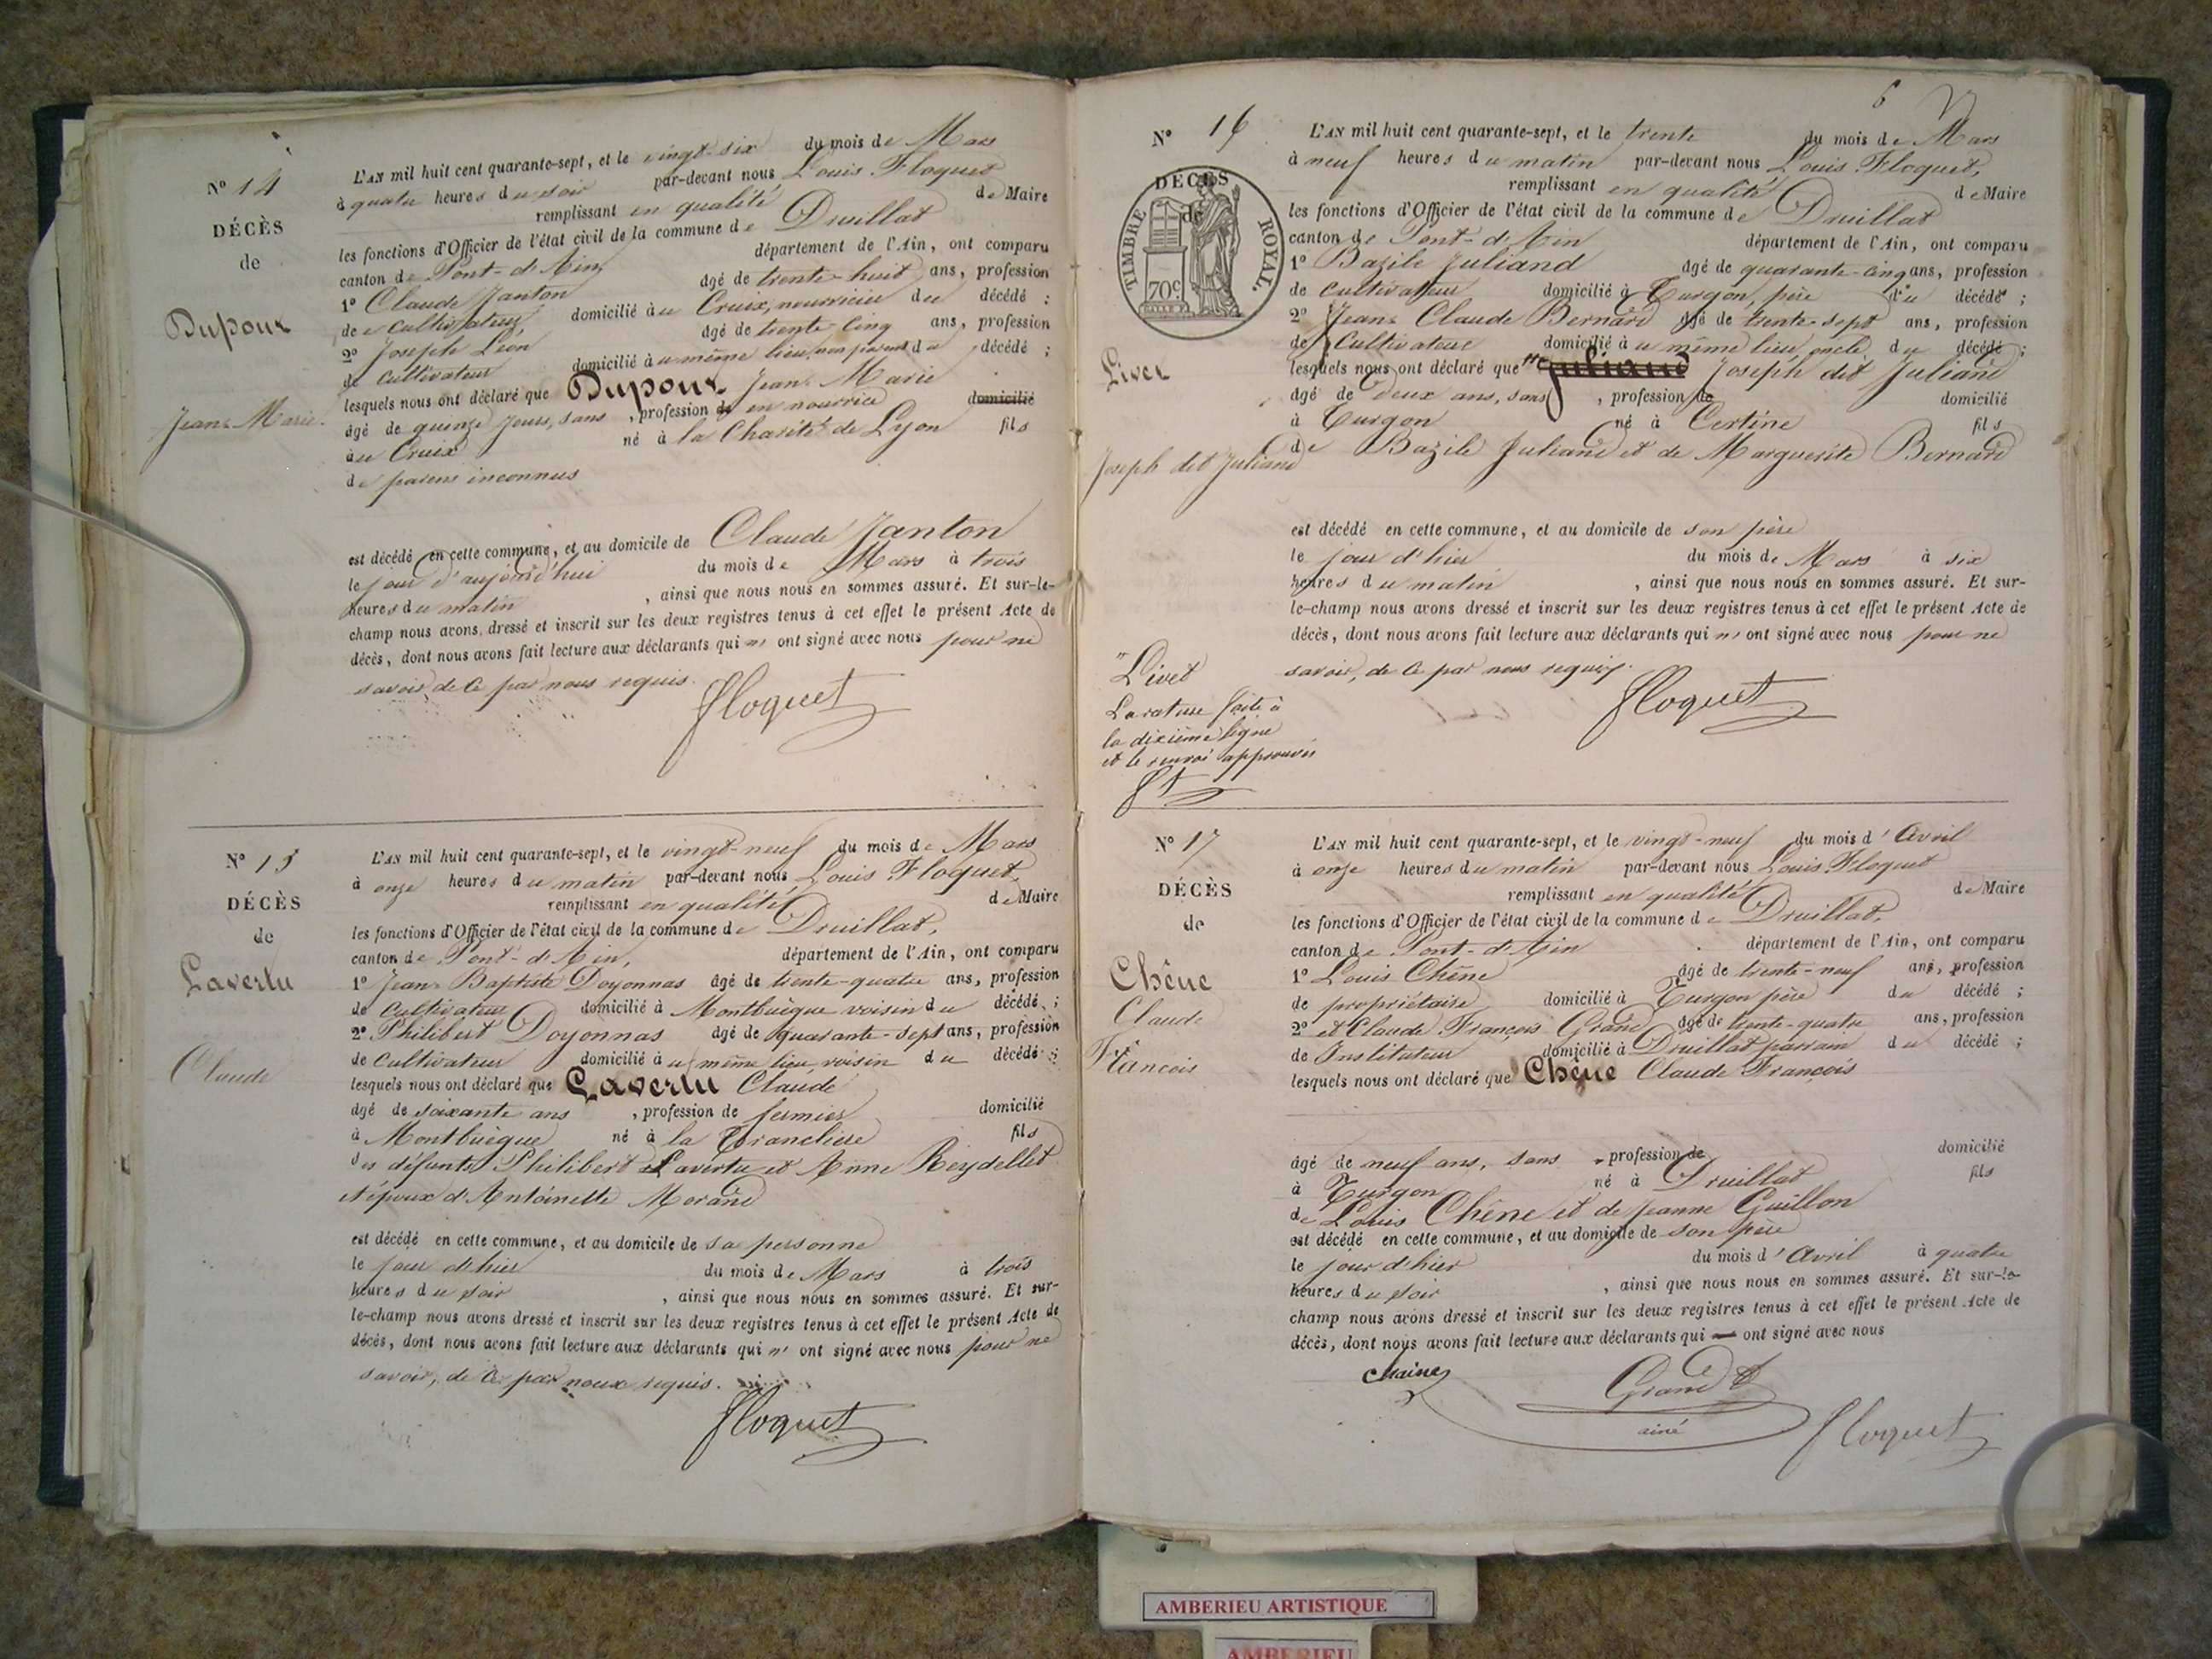 Nº 14
DÉCÈS
de
Dupoux
Jean Marie.
L'AN mil huit cent quarante-sept, et le vingt-six du mois de Mars
à quatre heures du soir par-devant nous Louis Floquet
remplissant en qualité de Maire
les fonctions d'Officier de l'état civil de la commune de Druillat
canton de Pont-d'Ain, département de l'Ain, ont comparu
1º Claude Janton âgé de trente-huit ans, profession
de cultivateur, domicilié au Cruix, nourricier du décédé ;
2º Joseph Léon âgé de trente-cinq ans, profession
de cultivateur domicilié au même lieu, non parent du décédé ;
lesquels nous ont déclaré que Dupoux Jean Marie
âgé de quinze jours, sans , profession de en nourrice domicilié
au Cruix né à la Charité de Lyon fils
de parens inconnus
est décédé en cette commune, et au domicile de Claude Janton
le jour d'aujourd'hui du mois de Mars à trois
heures du matin , ainsi que nous nous en sommes assuré. Et sur-le-
champ nous avons dressé et inscrit sur les deux registres tenus à cet effet le présent Acte de
décès, dont nous avons fait lecture aux déclarants qui n' ont signé avec nous pour ne
savoir, de ce par nous requis.
Floquet
Nº 15
DÉCÈS
de
Lavertu
Claude
L'AN mil huit cent quarante-sept, et le vingt-neuf du mois de Mars
à onze heures du matin par-devant nous Louis Floquet,
remplissant en qualité de Maire
les fonctions d'Officier de l'état civil de la commune de Druillat,
canton de Pont-d'Ain, département de l'Ain, ont comparu
1º Jean Baptiste Doyonnas âgé de trente-quatre ans, profession
de cultivateur domicilié à Montbuègue voisin du décédé ;
2º Philibert Doyonnas âgé de quarante-sept ans, profession
de cultivateur domicilié au même lieu, voisin du décédé ;
lesquels nous ont déclaré que Lavertu Claude
âgé de soixante ans , profession de fermier domicilié
à Montbuègue né à la Tranclière fils
des défunts Philibert Lavertu et Anne Reydellet
et époux d'Antoinette Morand
est décédé en cette commune, et au domicile de sa personne
le jour d'hier du mois de Mars à trois
heures du soir , ainsi que nous nous en sommes assuré. Et sur-
le-champ nous avons dressé et inscrit sur les deux registres tenus à cet effet le présent Acte de
décès, dont nous avons fait lecture aux déclarants qui n' ont signé avec nous pour ne
savoir, de ce par nous requis.
Floquet
6
Nº 16
DÉCÈS
de
TIMBRE ROYAL.
70c
Livet
Joseph dit Juliand
L'AN mil huit cent quarante-sept, et le trente du mois de Mars
à neuf heures du matin par-devant nous Louis Floquet,
remplissant en qualité de Maire
les fonctions d'Officier de l'état civil de la commune de Druillat
canton de Pont-d'Ain département de l'Ain, ont comparu
1º Bazile Juliand âgé de quarante-cinq ans, profession
de cultivateur domicilié à Turgon, père du décédé ;
2º Jean Claude Bernard âgé de trente-sept ans, profession
de Cultivateur domicilié au même lieu, oncle du décédé ;
lesquels nous ont déclaré que " Juliand Joseph dit Juliand
âgé de deux ans, sans , profession de domicilié
à Turgon né à Certine fils
de Bazile Juliand et de Marguerite Bernard
est décédé en cette commune, et au domicile de son père
le jour d'hier du mois de Mars à six
heures du matin , ainsi que nous nous en sommes assuré. Et sur-
le-champ nous avons dressé et inscrit sur les deux registres tenus à cet effet le présent Acte de
décès, dont nous avons fait lecture aux déclarants qui n' ont signé avec nous pour ne
savoir, de ce par nous requis.
Floquet
" Livet
La rature faite à
la dixième ligne
et le renvoi approuvés
Nº 17
DÉCÈS
de
Chêne
Claude
François
L'AN mil huit cent quarante-sept, et le vingt-neuf du mois d'Avril
à onze heures du matin par-devant nous Louis Floquet
remplissant en qualité de Maire
les fonctions d'Officier de l'état civil de la commune de Druillat,
canton de Pont-d'Ain département de l'Ain, ont comparu
1º Louis Chêne âgé de trente-neuf ans, profession
de propriétaire domicilié à Turgon père du décédé ;
2º et Claude François Grand âgé de trente-quatre ans, profession
de Instituteur domicilié à Druillat parrain du décédé ;
lesquels nous ont déclaré que Chêne Claude François
âgé de neuf ans, sans profession de domicilié
à Turgon né à Druillat fils
de Louis Chêne et de Jeanne Guillon
est décédé en cette commune, et au domicile de son père
le jour d'hier du mois d'Avril à quatre
heures du soir , ainsi que nous nous en sommes assuré. Et sur-le-
champ nous avons dressé et inscrit sur les deux registres tenus à cet effet le présent Acte de
décès, dont nous avons fait lecture aux déclarants qui — ont signé avec nous
Chaine
Grand
ainé
Floquet
AMBERIEU ARTISTIQUE
AMBERIEU